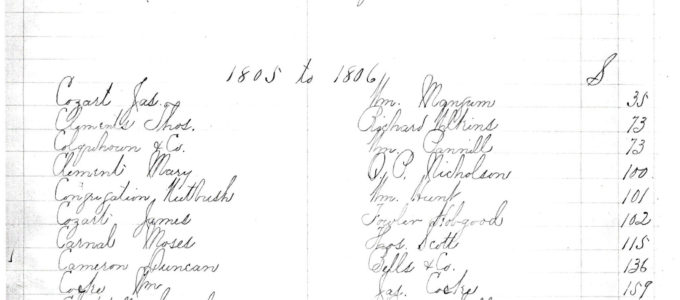 1805 to 1806 S
Cozart Jas. Wm. Mangum 35
Clements Thos. Richard Wilkins 73
Colquhoun & Co. Wm. Pannill 73
Clement Mary P. Nicholson 100
Congregation, Nutbush Wm. Hunt 101
Cozart James Fowler Hobgood 102
Carnal Moses Thos. Scott 115
Cameron Duncan Bells & Co. 136
Cocke Wm Jas. Cocke 159